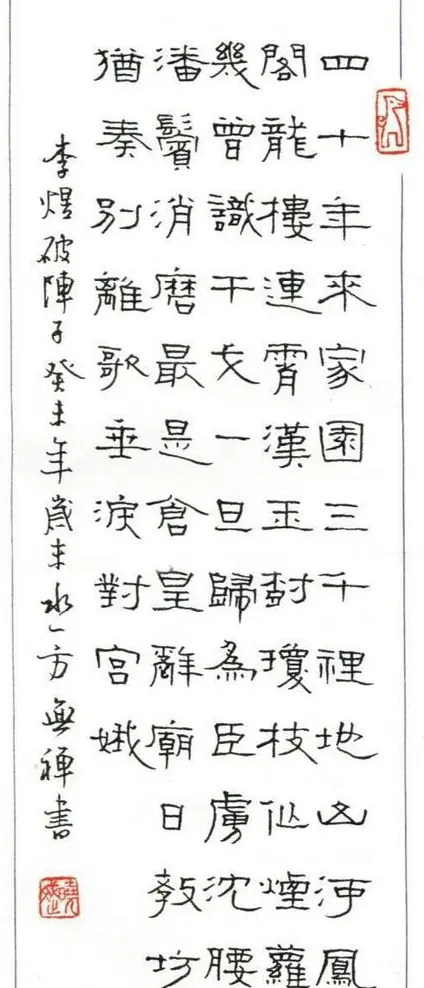 四十年來家園三千裡地山河鳳
閣龍樓連霄漢玉樹瓊枝作煙蘿
幾曾識干戈一旦歸為臣虜沈腰
潘鬢消磨最是倉皇辭廟日教坊
猶奏別離歌垂淚對宮娥
李煜破陣子癸未年歲末水一方無禪書